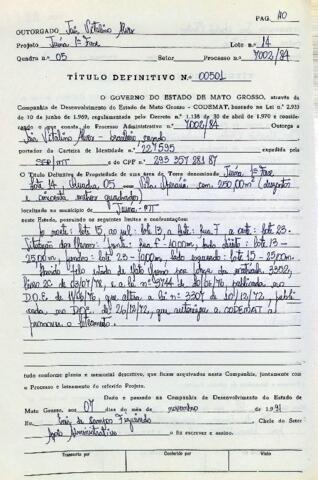 PAG. 110
OUTORGADO João Vitalino Alves
Projeto Juína 1ª Fase Lote n.º 14
Quadra n.º 05 Setor Processo n.º 7002/84
TÍTULO DEFINITIVO N.º 00501
O GOVERNO DO ESTADO DE MATO GROSSO, através da
Companhia de Desenvolvimento do Estado de Mato Grosso - CODEMAT, baseado na Lei n.º 2.933
de 10 de junho de 1.969, regulamentada pelo Decreto n.º 1.138 de 30 de abril de 1.970 e conside-
rando o que consta do Processo Administrativo n.º 7002/84 Outorga a
João Vitalino Alves - brasileiro casado
portador da Carteira de Identidade n.º 227595 expedida pela
SSP/MT e do CPF n.º 293 357 281 87
O Título Definitivo de Propriedade de uma área de Terra denominada Juína 1ª Fase
Lote 14 Quadra 05 com 250,00m² (duzentos
e cinquenta metros quadrados)
localizada no município de Juína - MT
neste Estado, possuindo os seguintes limites e confrontações:
Ao norte: lote 15, ao sul: lote 13, a leste: rua F, a oeste: lote 23 -
frente: rua F - 10,00m, lado direito: lote 13 -
25,00m, fundos: lote 23 - 10,00m, lado esquerdo: lote 15 - 25,00m.
pelo Estado de Mato Grosso por força da matrícula 3302,
livro 2C de 03/07/78, e a lei nº 3744 de 10/06/76 publicada no
D.O.E. 11/06/76, que altera a lei nº 3307 de 20/12/72, publi
cada no D.O.E. de 26/12/72, que autoriza a CODEMAT a
promover o loteamento.
tudo conforme planta e memorial descritivo, que ficam arquivados nesta Companhia, juntamente com
o Processo e loteamento do referido Projeto.
Dado e passado na Companhia de Desenvolvimento do Estado de
Mato Grosso, aos 07 dias do mês de novembro de 1991
Eu, Luiz de Campos Figueiredo Chefe do Setor
Apoio Administrativo o fiz escrever e assino.
Transcrito por Conferido por Visto